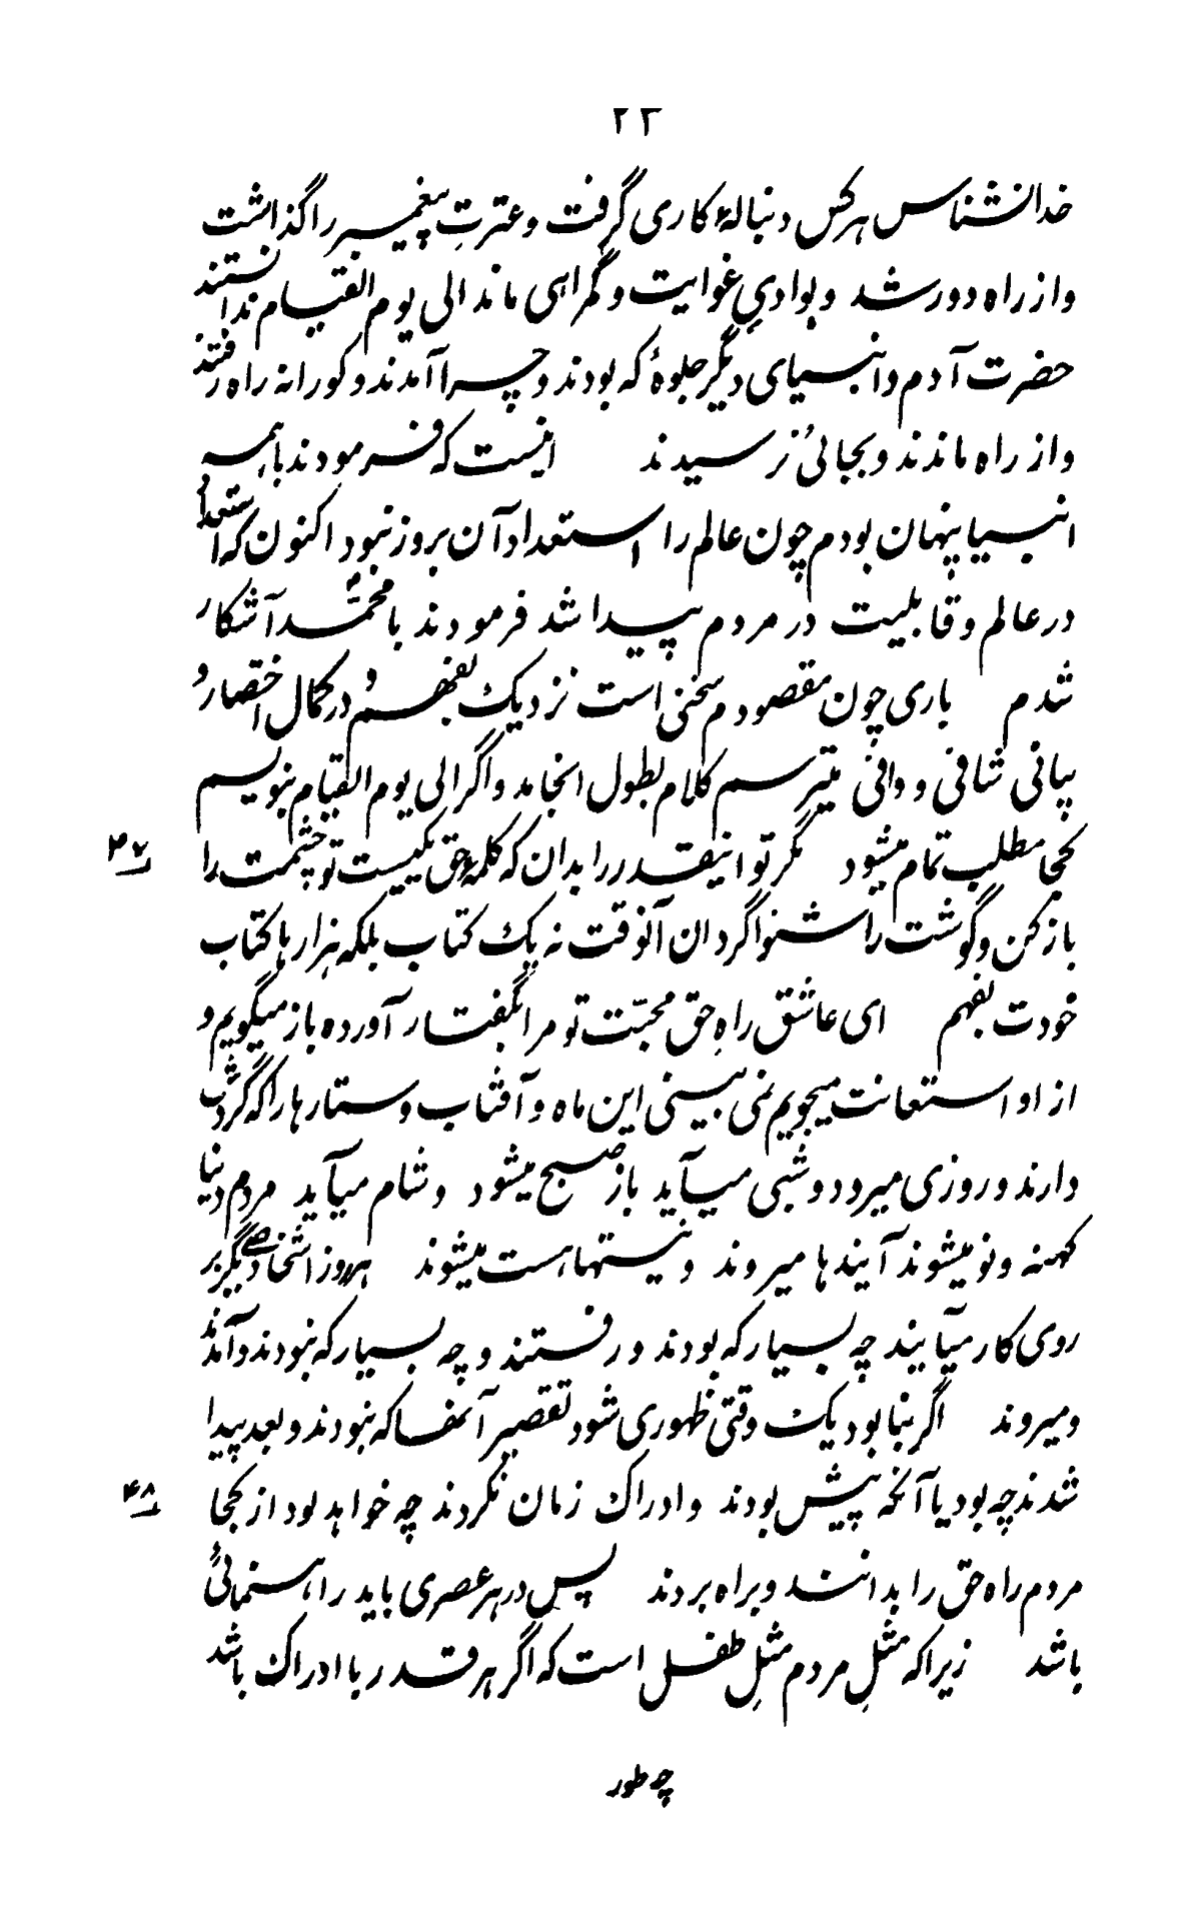 ۲۳
خدانشناس هرکس دنبالهٔ کاری گرفت و عترتِ پیغمبر را گذاشت
و از راه دور شد و بوادیِ غوایت و گمراهی ماند الی یوم القیام ندانستند
حضرت آدم و انبیای دیگر جلوهٔ که بودند و چرا آمدند و کورانه راه رفتند
و از راه ماندند و بجائی نرسیدند اینست که فرمودند با همه
انبیا پنهان بودم چون عالم را استعداد آن بروز نبود اکنون که استعداد
در عالم و قابلیت در مردم پیدا شد فرمودند با محمّد آشکار
شدم باری چون مقصودم سخنی است نزدیک بفهم و در کمال اختصار و
بیانی شافی و وافی میترسم کلام بطول انجامد و اگر الی یوم القیام بنویسم
کجا مطلب تمام میشود مگر تو اینقدر را بدان که کلمهٔ حق یکیست تو چشمت را
۴۷
باز کن و گوشت را شنوا گردان آنوقت نه یک کتاب بلکه هزارها کتاب
خودت بفهم ای عاشق راهِ حق محبّت تو مرا بگفتار آورده باز میگویم و
از او استعانت میجویم نمی بینی این ماه و آفتاب و ستارها را که گردش
دارند و روزی میرود و شبی میآید باز صبح میشود و شام میآید مردم دنیا
کهنه و نو میشوند آیندها میروند و نیستها هست میشوند هر روز اشخاص دیگر بر
روی کار میآیند چه بسیار که بودند و رفتند و چه بسیار که نبودند و آمدند
و میروند اگر بنا بود یک وقتی ظهوری شود تقصیر آنها که نبودند و بعد پیدا
شدند چه بود یا آنکه پیش بودند و ادراک زمان نکردند چه خواهد بود از کجا
۴۸
مردم راه حق را بدانند و براه بردند پس در هر عصری باید راهنمائی
باشد زیرا که مثلِ مردم مثلِ طفل است که اگر هر قدر با ادراک باشد
چه طور